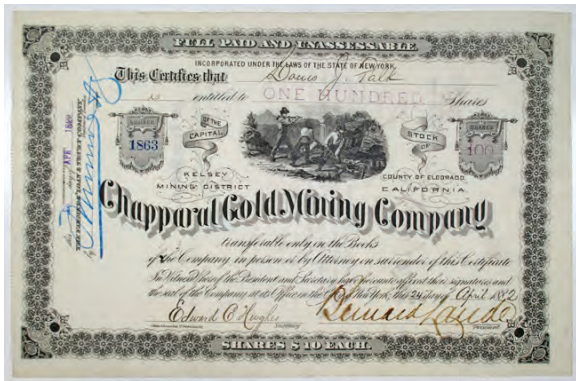 FULL PAID AND UNASSESSABLE.
INCORPORATED UNDER THE LAWS OF THE STATE OF NEW YORK.
This Certifies that Louis J. Falk
is entitled to ONE HUNDRED Shares
OF THE CAPITAL STOCK OF
NUMBER
1863
SHARES
100
KELSEY
MINING DISTRICT
COUNTY OF ELDORADO,
CALIFORNIA.
Chapparal Gold Mining Company
transferable only on the Books
of the Company in person or by Attorney on surrender of this Certificate
In Witness Whereof the President and Secretary have hereunto affixed their signatures and
the seal of the Company at its Office in the City of New York, this 24 day of April 1882
Edward E. Hughes
Secretary
President
SHARES $10 EACH.
APR
THE FARMERS' LOAN & TRUST COMPANY,